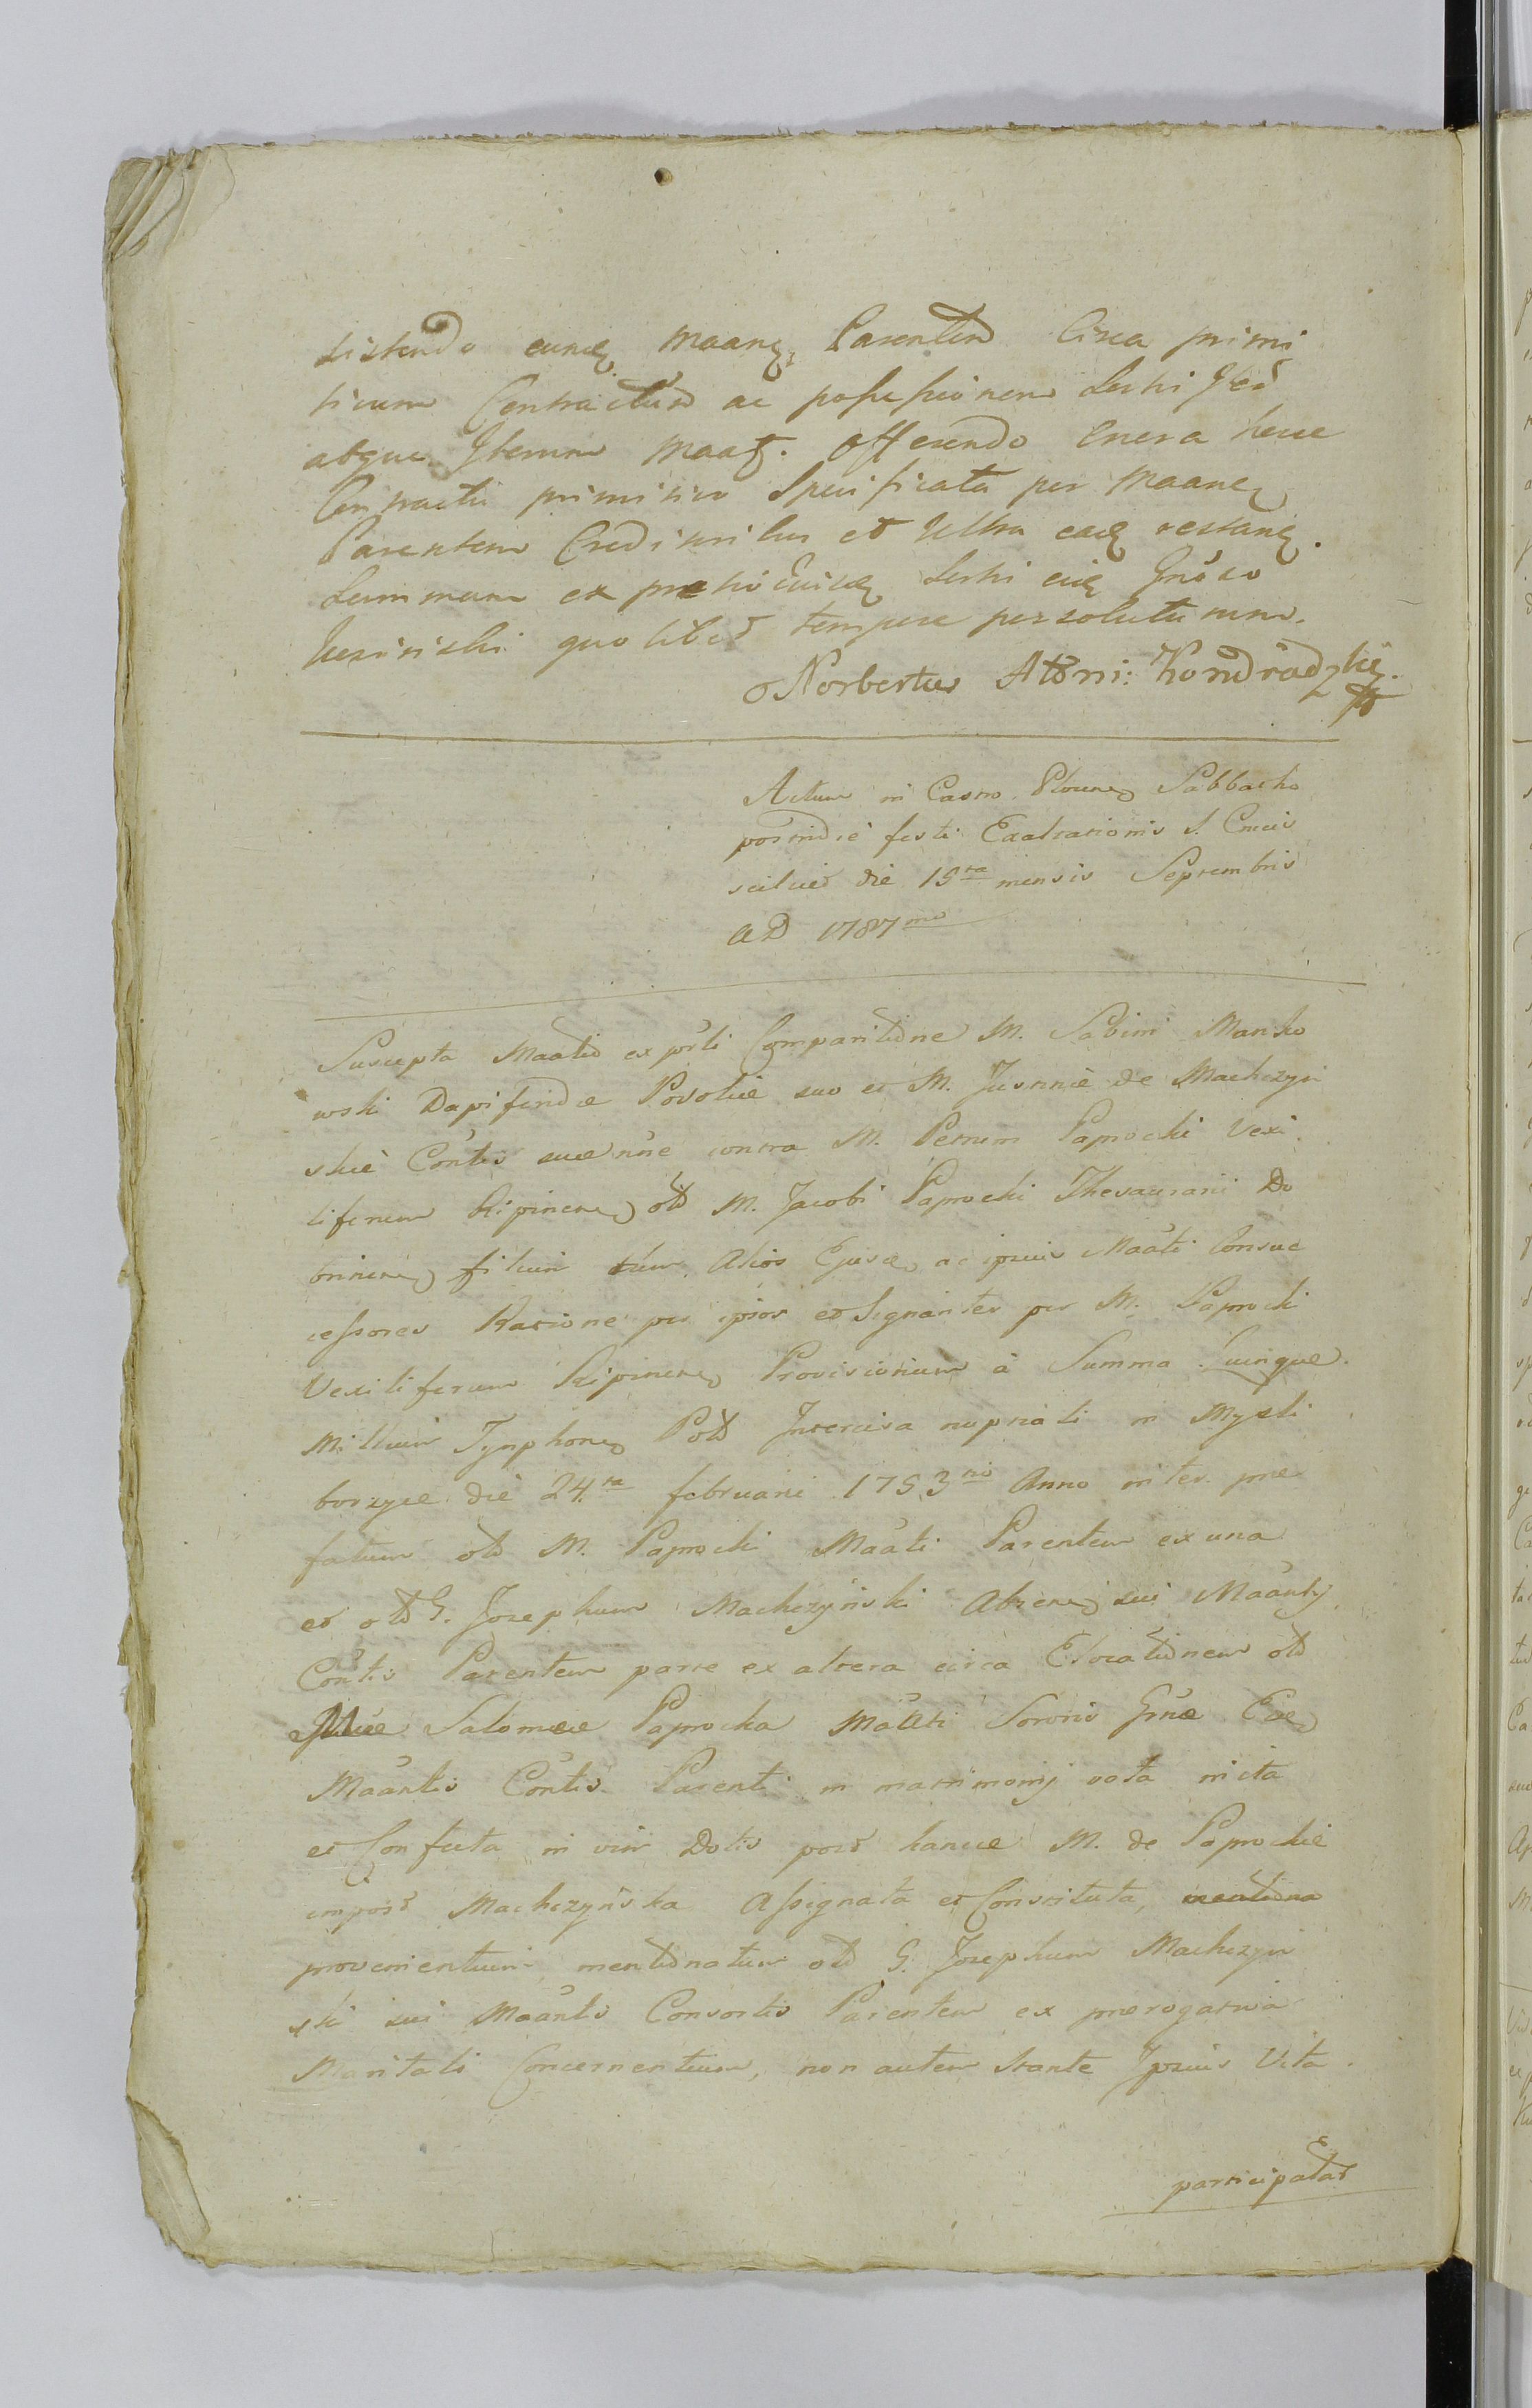 sistendo eund Maand Parentem Circa primi
tivum Contractum ac possessionem Sorti Ited
atque Iterum Maat. offerendo Onera hocce
Contractu primitivo Specificata per Maand
Parentem Creditoribus et Ultra ead restand.
Summam ex praetio Sorti
quolibet tempore persoluturum.
Norbertus Attoni: Kondradzki
Actum in Castro Plocens Sabbatho
postridie festi Exaltationis S. Crucis
scilicet die 15ta mensis Septembris
AD 1787mo
Suscepta Maatio ex parti Comparitione M. Sabini Manko
wski Dapiferidae Podoliae suo et M. Jusnnie de Machczyń
skie Contis suae nne contra M. Petrum Paprocki Vexi
liferum Ripinens old M. Jacobi Paprocki Thesaurarii Do
brinens filium tum Alios Ejusd, ac ipsius Maati Consuc
cessores Ratione per ipsos et Signanter per M. Paprocki
Vexiliferum Ripinens Provisionum à Summa Quinque
Millium Tynphons Pold Intercisa nuptiali in Mysli
borzyce die 24ta februarii 1753tio Anno inter prae
fatum old M. Paprocki Maati Parentem ex una
et old G. Josephum Machczyński Abiens sui Maantis
Contis Parentem parte ex altera circa Elocationem old
Salomeae Paprocka Maati Sororis Gnae Ead
Maantis Contis Parenti in matrimonij vota inita
et Confecta in vim Dotis post hancce M. de Paprockie
impost Machczyńska Assignata et Constituta,
provenientium mentionatum old G. Josephum Machczyń
ski sui Maantis Consortis Parentem ex praerogativa
Maritali Concernentium, non autem Stante Ipsius Vita
participatar